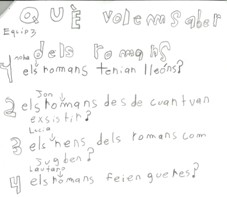 QUÈ volem saber
Equip 3
dels romans
Anna
1 els romans tenian lleons?
Jon
2 els romans desde cuantvan
exsistir?
Lucia
3 els nens dels romans com
jugben?
Lautaro
4 els romans feien gueres?